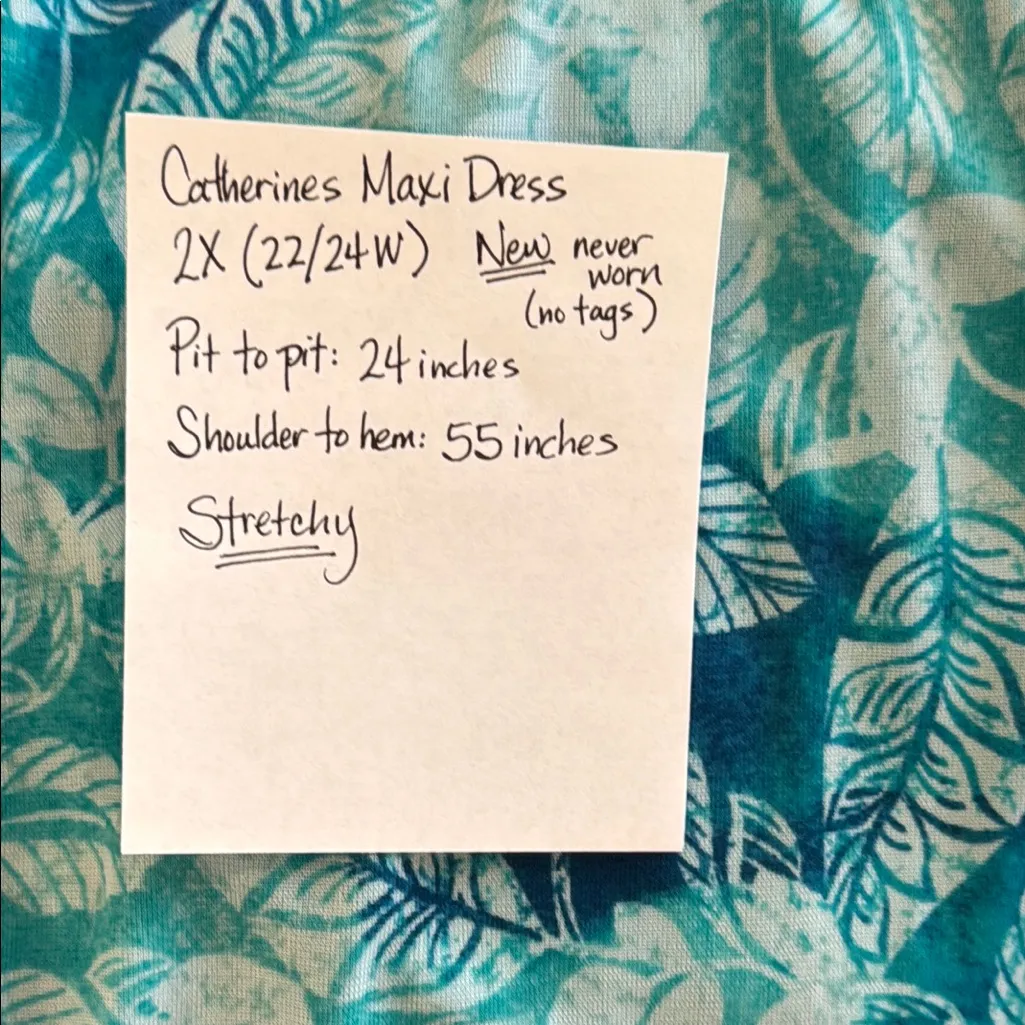 Catherines Maxi Dress
2X (22/24W) New never
worn
(no tags)
Pit to pit: 24 inches
Shoulder to hem: 55 inches
Stretchy